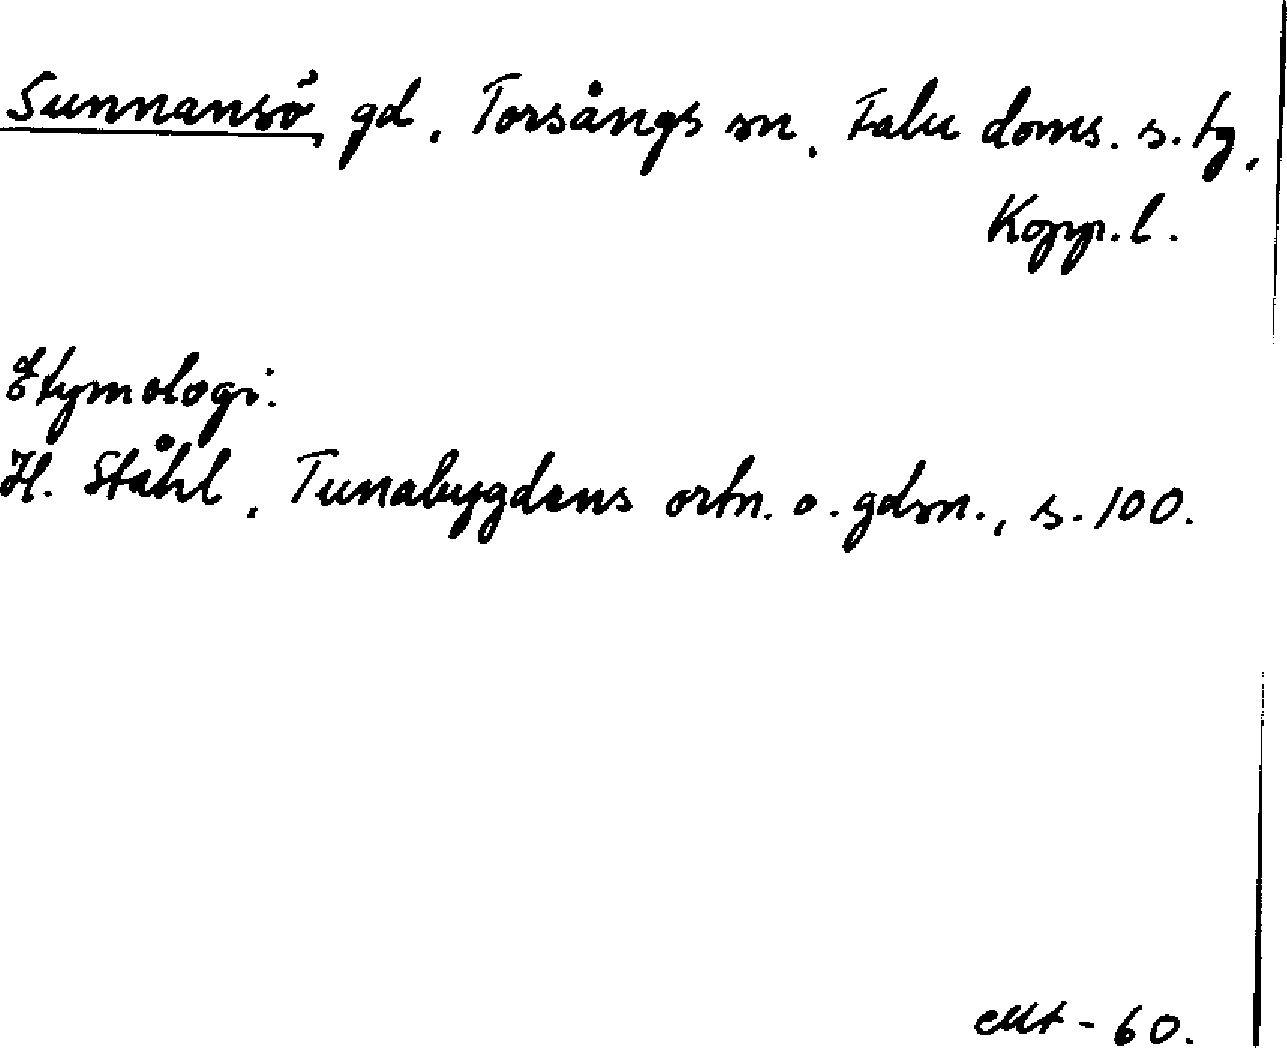 Sunnansö gd, Torsångs sn, Falu doms. s. tg,
Kopp. l.
Etymologi:
H. Ståhl, Tunabygdens ortn. o. gdsn., s. 100.
Mt - 60.